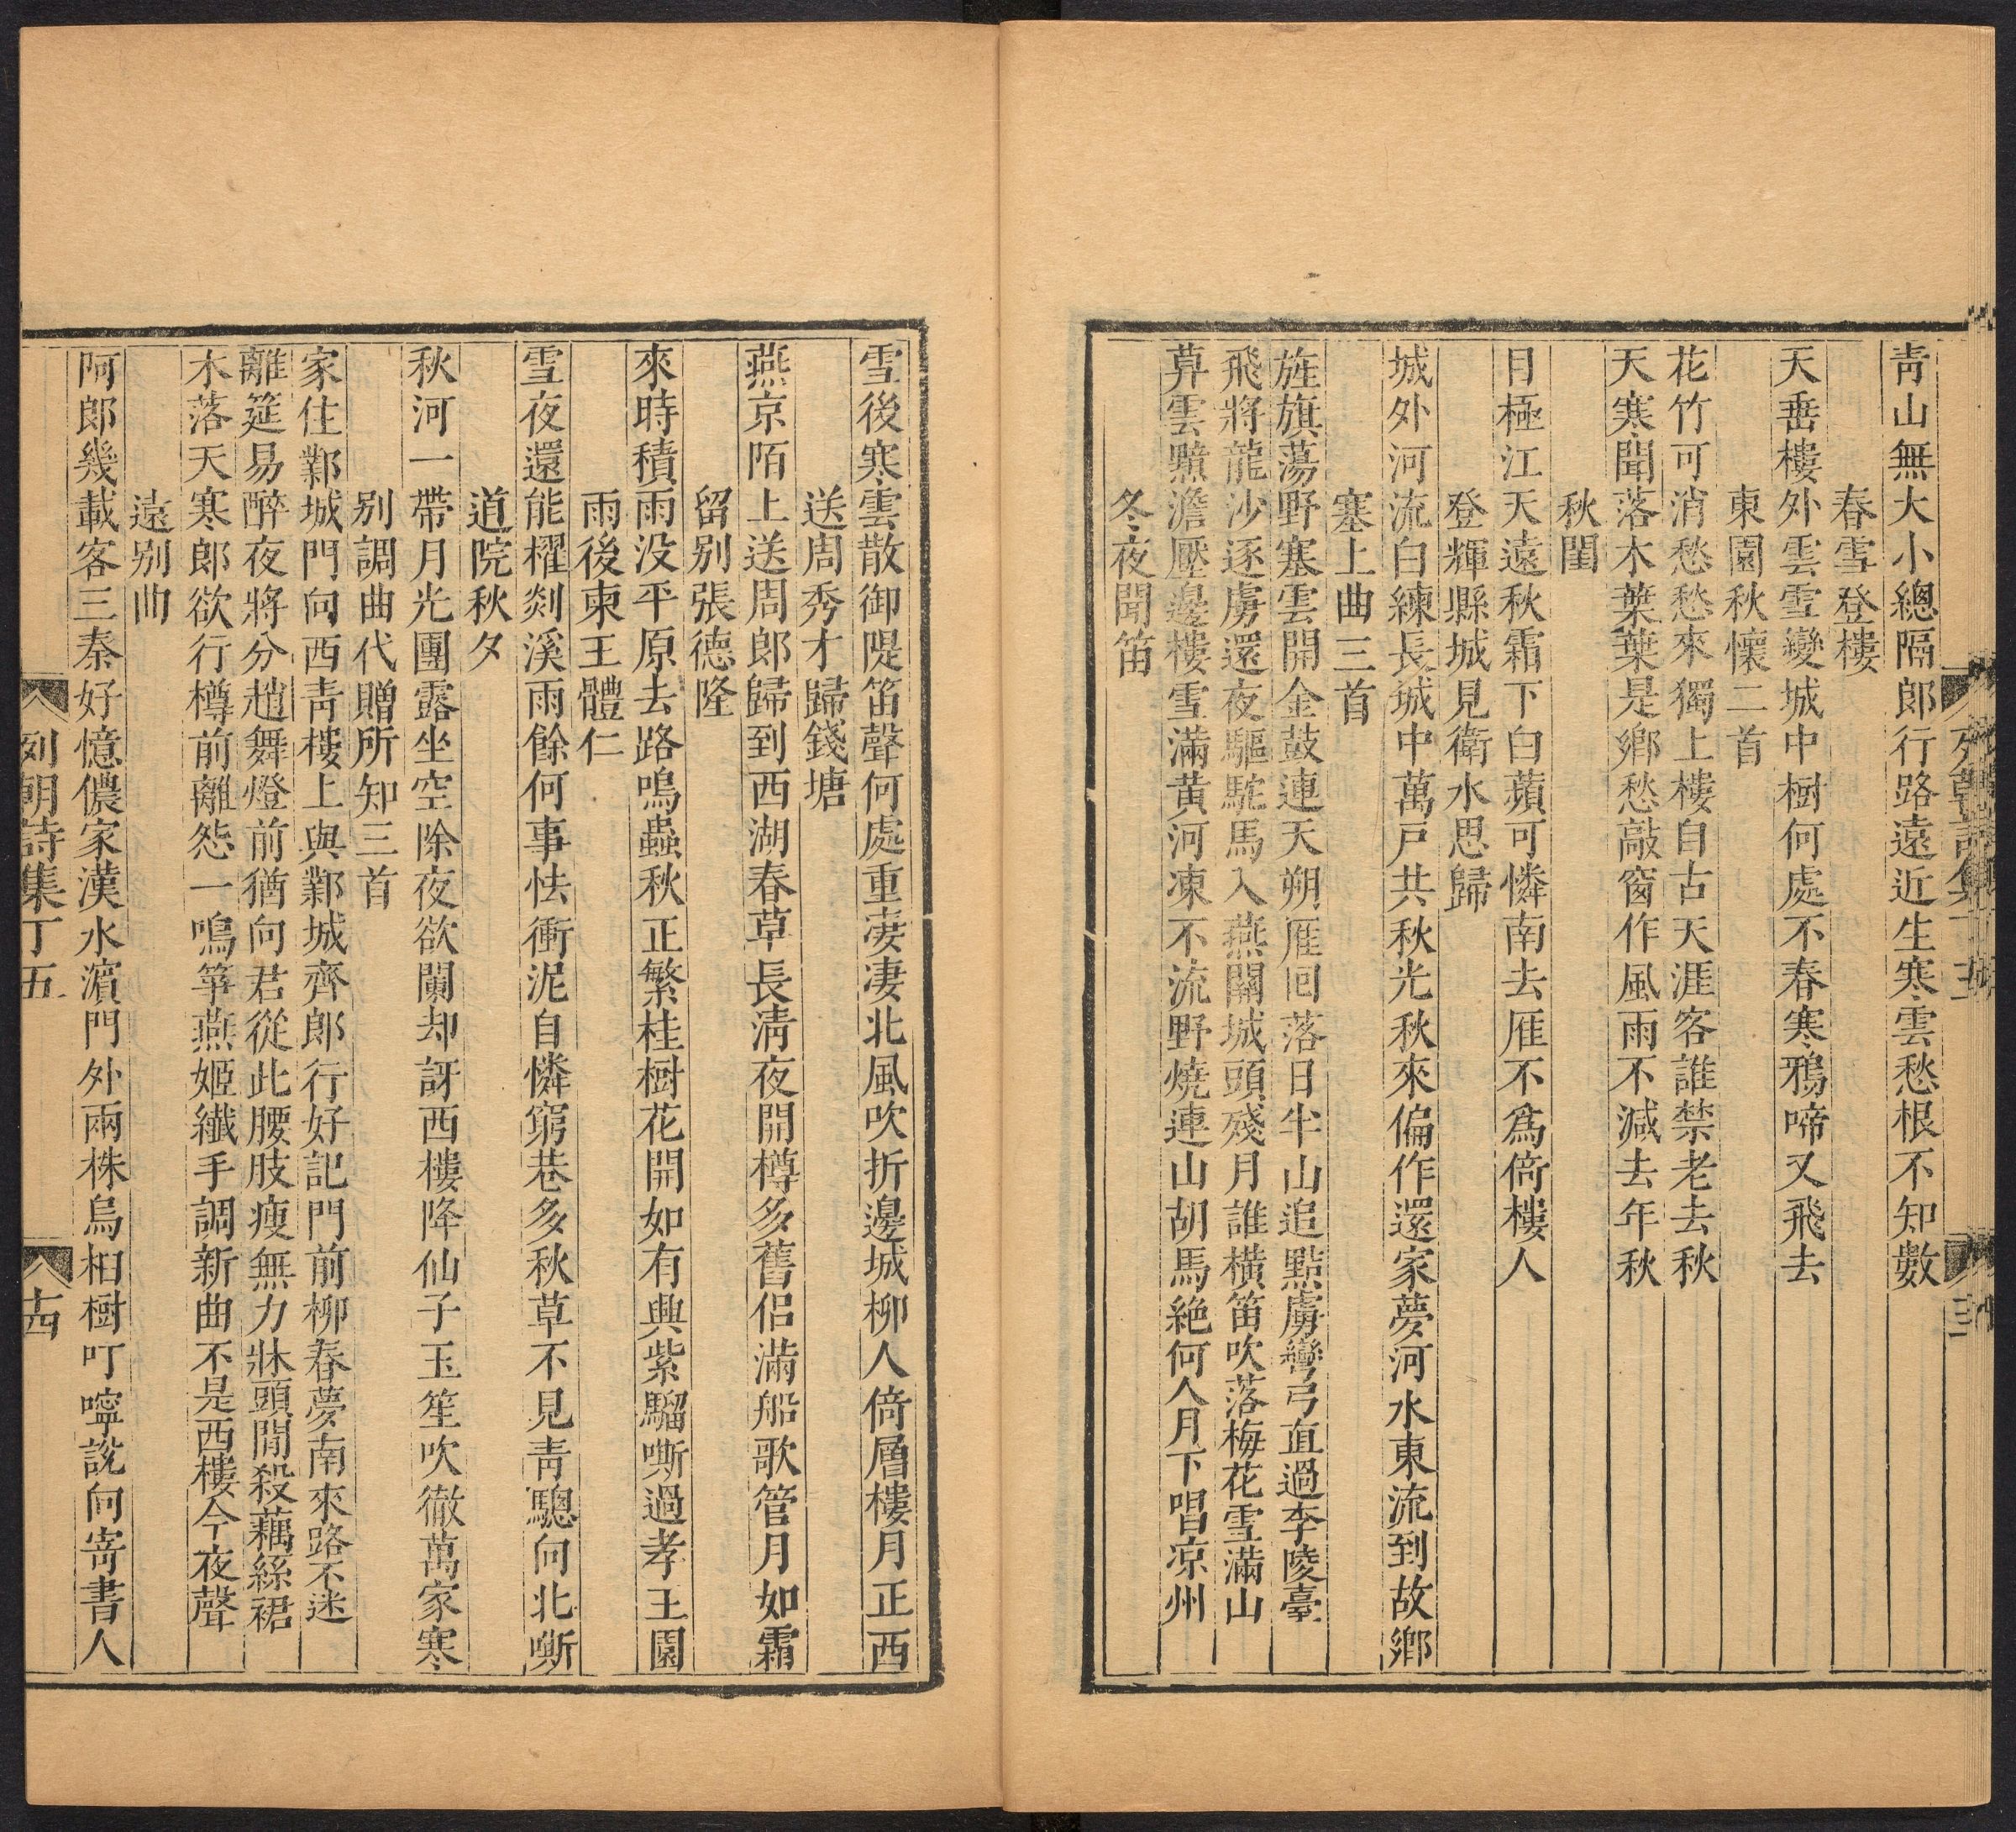 青山無大小總隔郎行路遠近生寒雲愁根不知數
春雪登樓
天垂樓外雲雪變城中樹何處不春寒鴉啼又飛去
東園秋懷二首
花竹可消愁愁來獨上樓自古天涯客誰禁老去秋
天寒聞落木葉葉是鄉愁敲窗作風雨不減去年秋
秋閨
目極江天遠秋霜下白蘋可憐南去雁不爲倚樓人
登輝縣城見衛水思歸
城外河流白練長城中萬戸共秋光秋來偏作還家夢河水東流到故鄉
塞上曲三首
旌旗蕩野塞雲開金鼓連天朔雁回落日半山追點虜彎弓直過李陵臺
飛將龍沙逐虜還夜驅駝馬入燕關城頭殘月誰橫笛吹落梅花雪滿山
莽雲黲澹壓邊樓雪滿黃河凍不流野燒連山胡馬絶何人月下唱凉州
冬夜聞笛
雪後寒雲散御隄笛聲何處重凄凄北風吹折邊城柳人倚層樓月正西
送周秀才歸錢塘
燕京陌上送周郎歸到西湖春草長淸夜開樽多舊侣滿船歌管月如霜
留别張德隆
來時積雨没平原去路鳴蟲秋正繁桂樹花開如有興紫騮嘶過孝王園
雨後柬王體仁
雪夜還能櫂剡溪雨餘何事怯衝泥自憐窮巷多秋草不見靑驄向北嘶
道院秋夕
秋河一帶月光團露坐空除夜欲闌却訝西樓降仙子玉笙吹徹萬家寒
别調曲代贈所知三首
家住鄴城門向西靑樓上與鄴城齊郎行好記門前柳春夢南來路不迷
離筵易醉夜將分趙舞燈前猶向君從此腰肢瘦無力牀頭閒殺藕絲裙
木落天寒郎欲行樽前離怨一鳴箏燕姬纖手調新曲不是西樓今夜聲
遠别曲
阿郎幾載客三秦好憶儂家漢水濵門外兩株烏桕樹叮嚀說向寄書人
列朝詩集丁五
十四